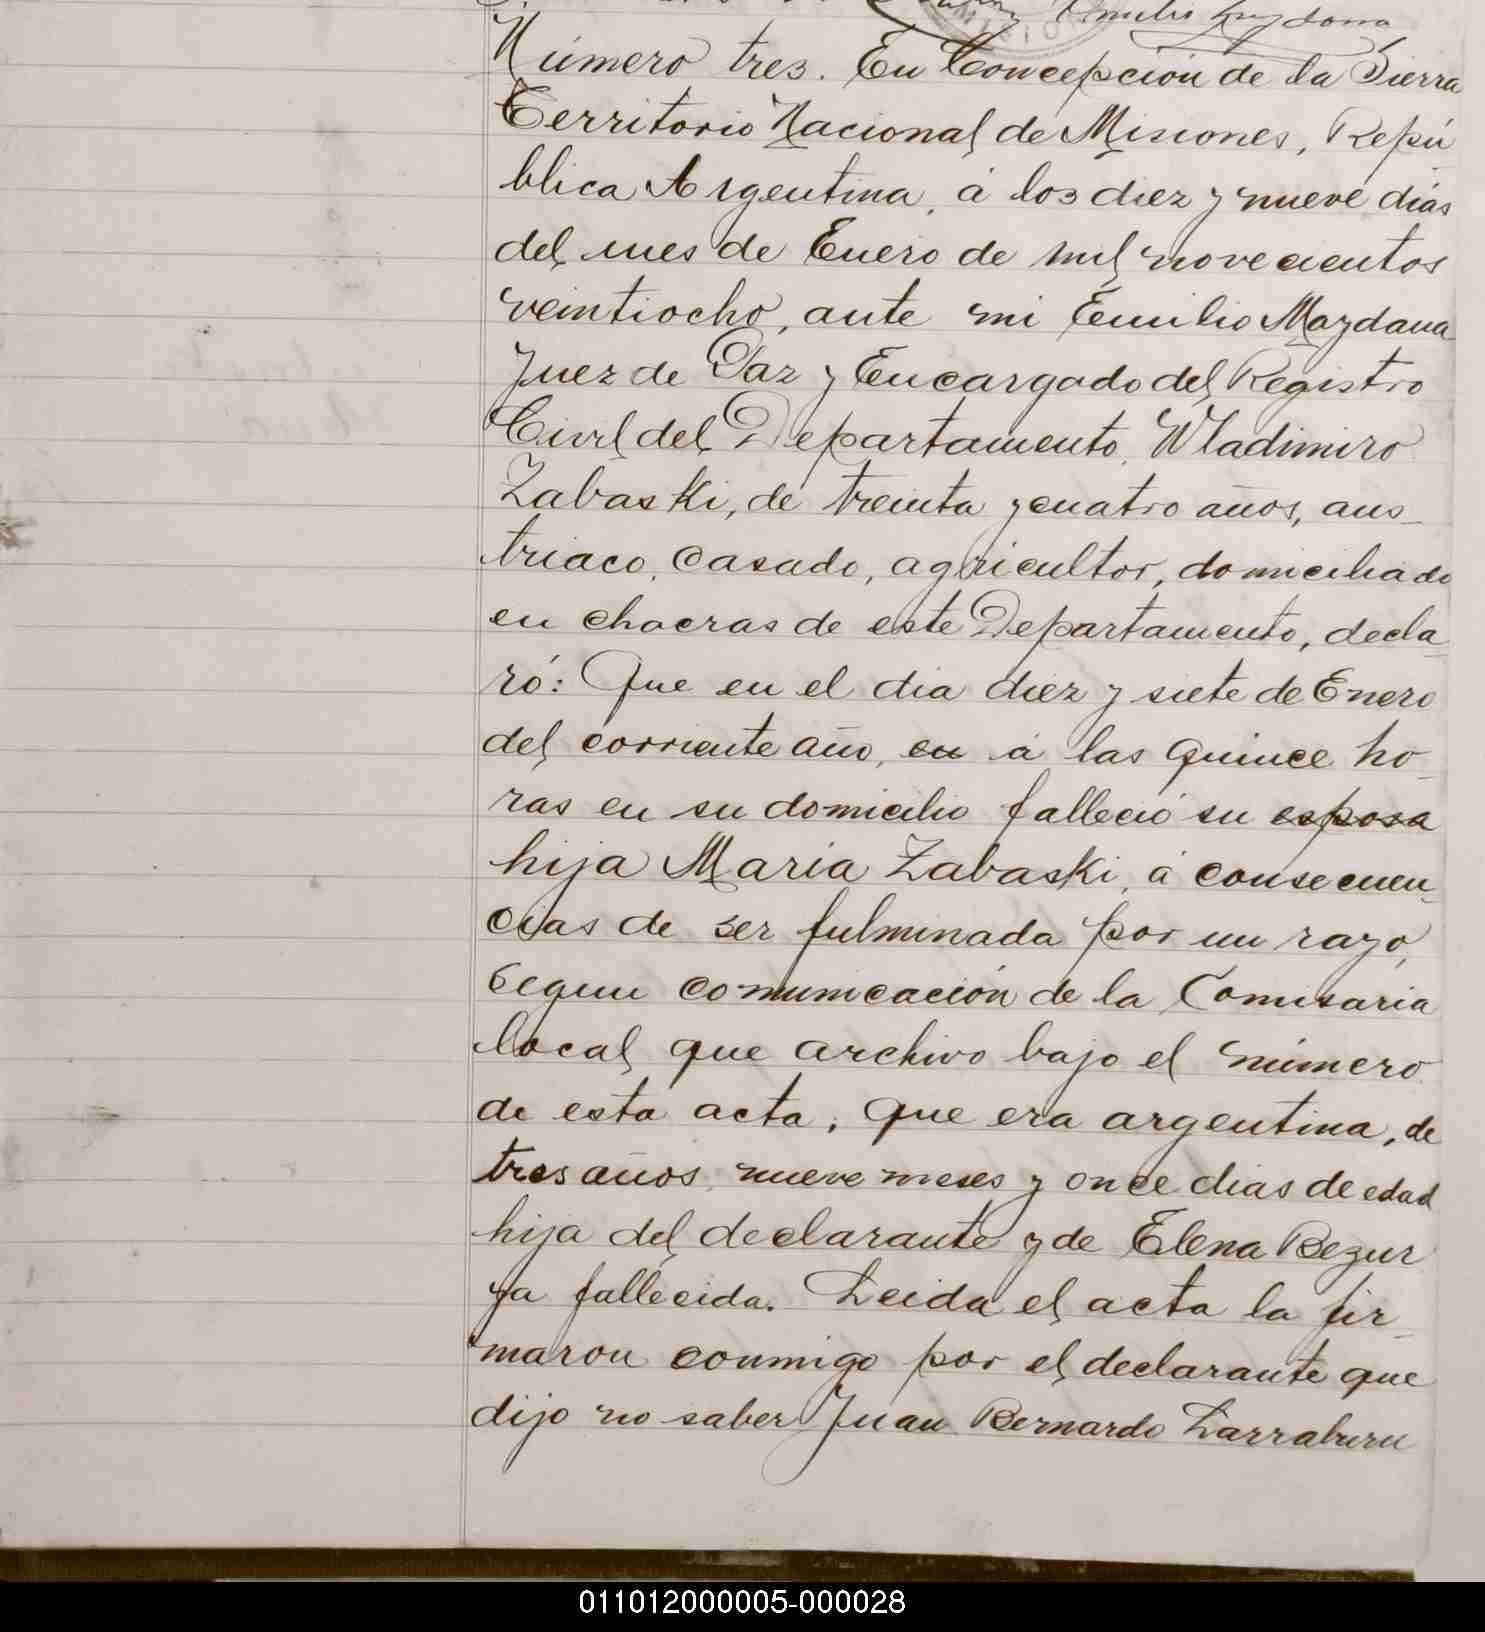 Emilio Mazdana
Número tres. En Concepción de la Sierra
Territorio Nacional de Misiones, Repú
blica Argentina, á los diez y nueve dias
del mes de Enero de mil novecientos
veintiocho, ante mi Emilio Mazdana
Juez de Paz y Encargado del Registro
Civil del Departamento, Wladimiro
Zabaski, de treinta y cuatro años, aus_
triaco, casado, agricultor, domiciliado
en chacras de este Departamento, decla_
ró: Que en el dia diez y siete de Enero
del corriente año, en á las quince ho_
ras en su domicilio falleció su esposa
hija Maria Zabaski, á consecuen_
cias de ser fulminada por un rayo,
segun comunicación de la Comisaria
local que archivo bajo el número
de esta acta; que era argentina, de
tres años, nueve meses y once dias de edad
hija del declarante y de Elena Bezur
ya fallecida. Leida el acta la fir_
maron conmigo por el declarante que
dijo no saber Juan Bernardo Larraburu
011012000005-000028